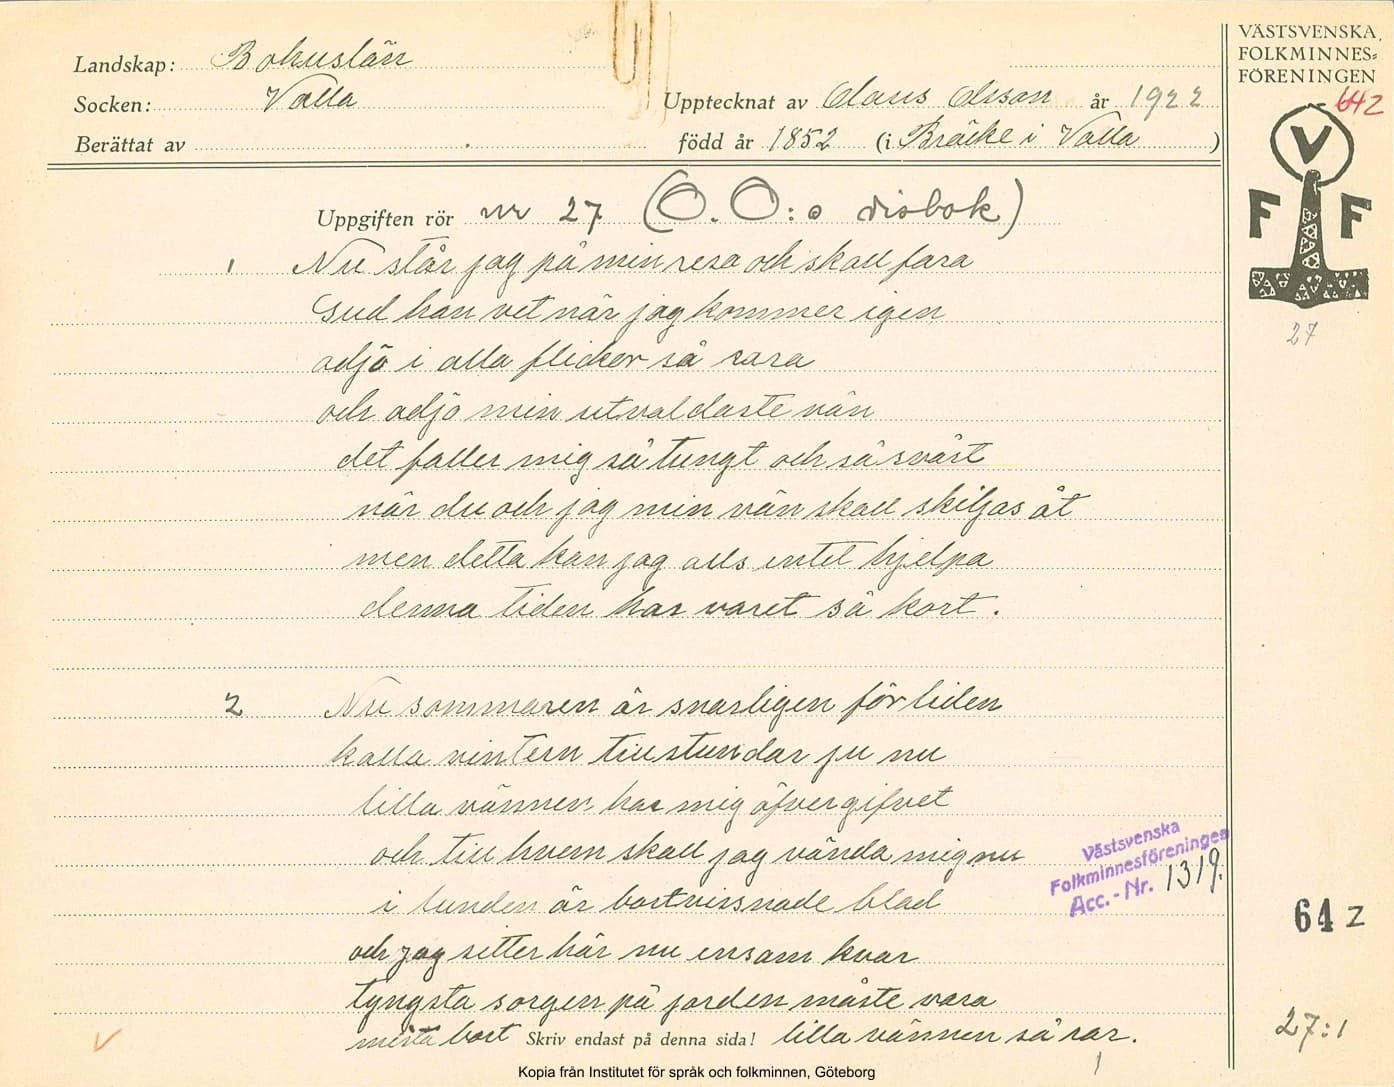 Landskap: Bohuslän
Socken: Valla
Berättat av
Upptecknat av Claus Olsson år 1922
född år 1852 (i Bräcke i Valla)
Uppgiften rör nr 27 (O. O:s visbok)
1 Nu står jag på min resa och skall fara
Gud han vet när jag kommer igen
adjö i alla flickor så rara
och adjö min utvaldaste vän
det faller mig så tungt och så svårt
när du och jag min vän skall skiljas åt
men detta kan jag alls intet hjelpa
denna tiden har varet så kort.
2 Nu sommaren är snarligen förliden
kalla vintern tillstundar ju nu
lilla vännen har mig öfvergifvet
och till hvem skall jag vända mig nu
i lunden är bortvissnade blad
och jag sitter här nu ensam kvar
tyngsta sorgen på jorden måste vara
mista bort lilla vännen så rar.
Skriv endast på denna sida!
VÄSTSVENSKA
FOLKMINNES=
FÖRENINGEN
642
V
F F
27
Västsvenska
Folkminnesföreningen
Acc.-Nr. 1319.
64 2
27:1
Kopia från Institutet för språk och folkminnen, Göteborg